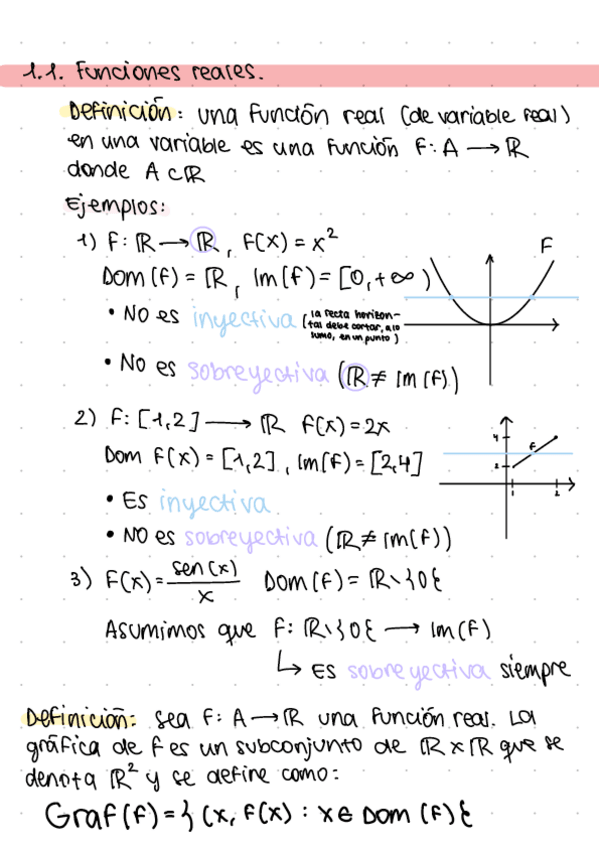 1.1. Funciones reales.
Definición: una función real (de variable real)
en una variable es una función F: A → ℝ
donde A ⊂ ℝ
Ejemplos:
1) F: ℝ → ℝ, F(x) = x²
Dom (F) = ℝ, Im (F) = [0, +∞)
• NO es inyectiva (la recta horizon-
tal debe cortar, a lo
sumo, en un punto)
• No es sobreyectiva (ℝ ≠ Im (F))
F
2) F: [1,2] → ℝ F(x) = 2x
Dom F(x) = [1,2], Im(F) = [2,4]
• ES inyectiva.
• NO es sobreyectiva (ℝ ≠ Im(F))
4
2
F
1
2
3) F(x) = sen (x) / x Dom (F) = ℝ \ }0{
Asumimos que F: ℝ \ }0{ → Im (F)
↳ ES sobreyectiva siempre
Definición: Sea F: A → ℝ una función real. La
gráfica de F es un subconjunto de ℝ x ℝ que se
denota ℝ² y se define como:
Graf (F) = } (x, F(x) : x ∈ Dom (F) {